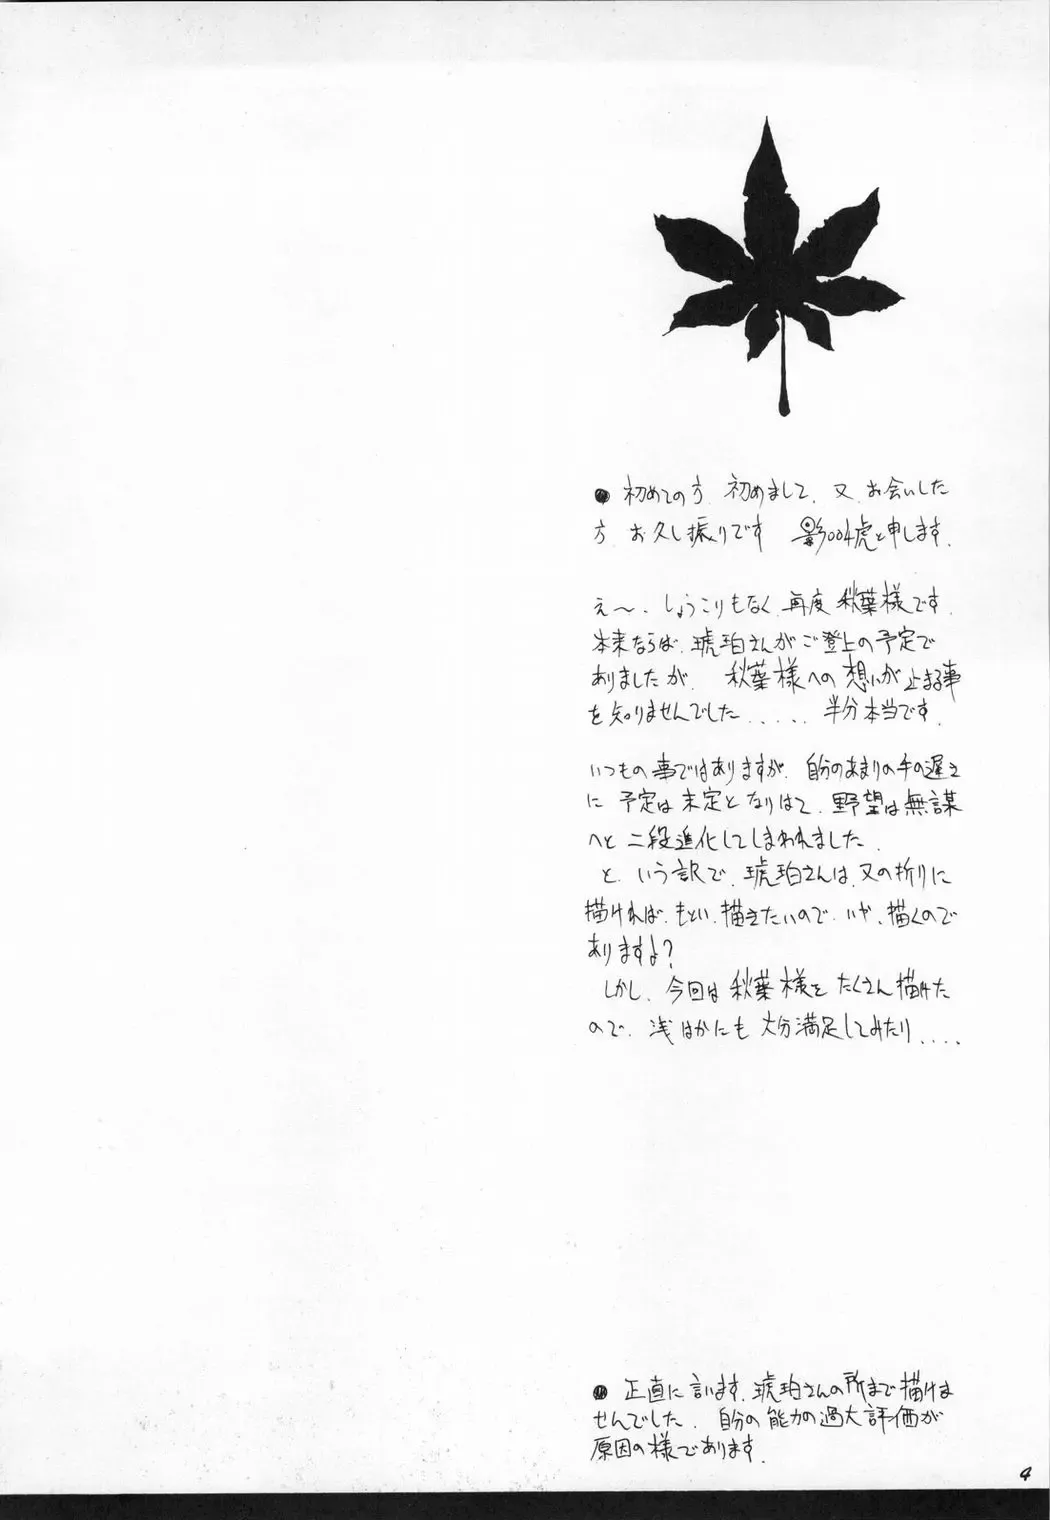 ● 初めての方、初めまして、又、お会いした
方、お久し振りです 影004虎と申します。
え〜、しょうこりもなく、再度 秋葉様です。
本来ならば、琥珀さんがご登上の予定で
ありましたが、秋葉様への想いが止まる事
を知りませんでした..... 半分本当です。
いつもの事ではありますが、自分のあまりの手の遅さ
に 予定は未定となりはて、野望は無謀
へと二段進化してしまわれました。
と、いう訳で、琥珀さんは、又の折りに
描ければ、もとい、描きたいので、いや、描くので
ありますよ?
しかし、今回は 秋葉様を たくさん描けた
ので、浅はかにも 大分満足してみたり....
● 正直に言います、琥珀さんの所まで描けま
せんでした、自分の能力の過大評価が
原因の様であります。
4